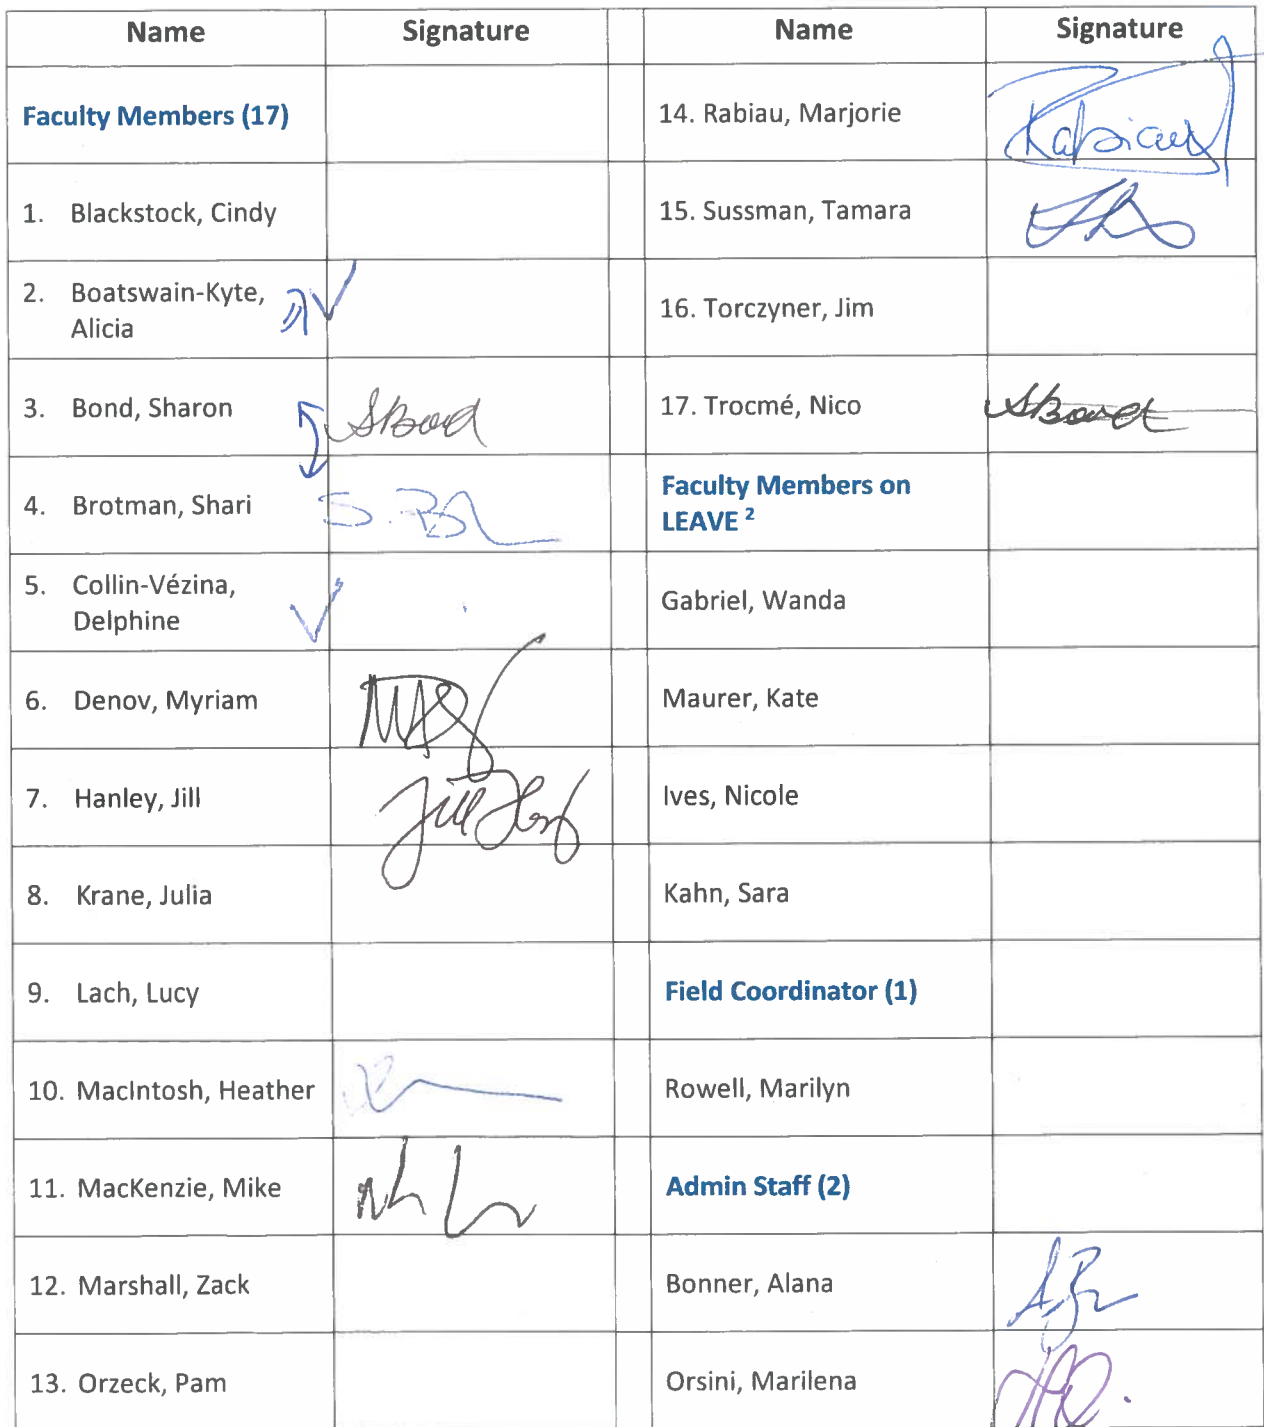 Name Signature Name Signature
Faculty Members (17)
14. Rabiau, Marjorie Rabiau
1. Blackstock, Cindy
15. Sussman, Tamara
2. Boatswain-Kyte,
Alicia
16. Torczyner, Jim
3. Bond, Sharon SBond
17. Trocmé, Nico SBond
4. Brotman, Shari S. B
Faculty Members on
LEAVE ²
5. Collin-Vézina,
Delphine
Gabriel, Wanda
6. Denov, Myriam
Maurer, Kate
7. Hanley, Jill Jill
Ives, Nicole
8. Krane, Julia
Kahn, Sara
9. Lach, Lucy
Field Coordinator (1)
10. MacIntosh, Heather
Rowell, Marilyn
11. MacKenzie, Mike
Admin Staff (2)
12. Marshall, Zack
Bonner, Alana
13. Orzeck, Pam
Orsini, Marilena